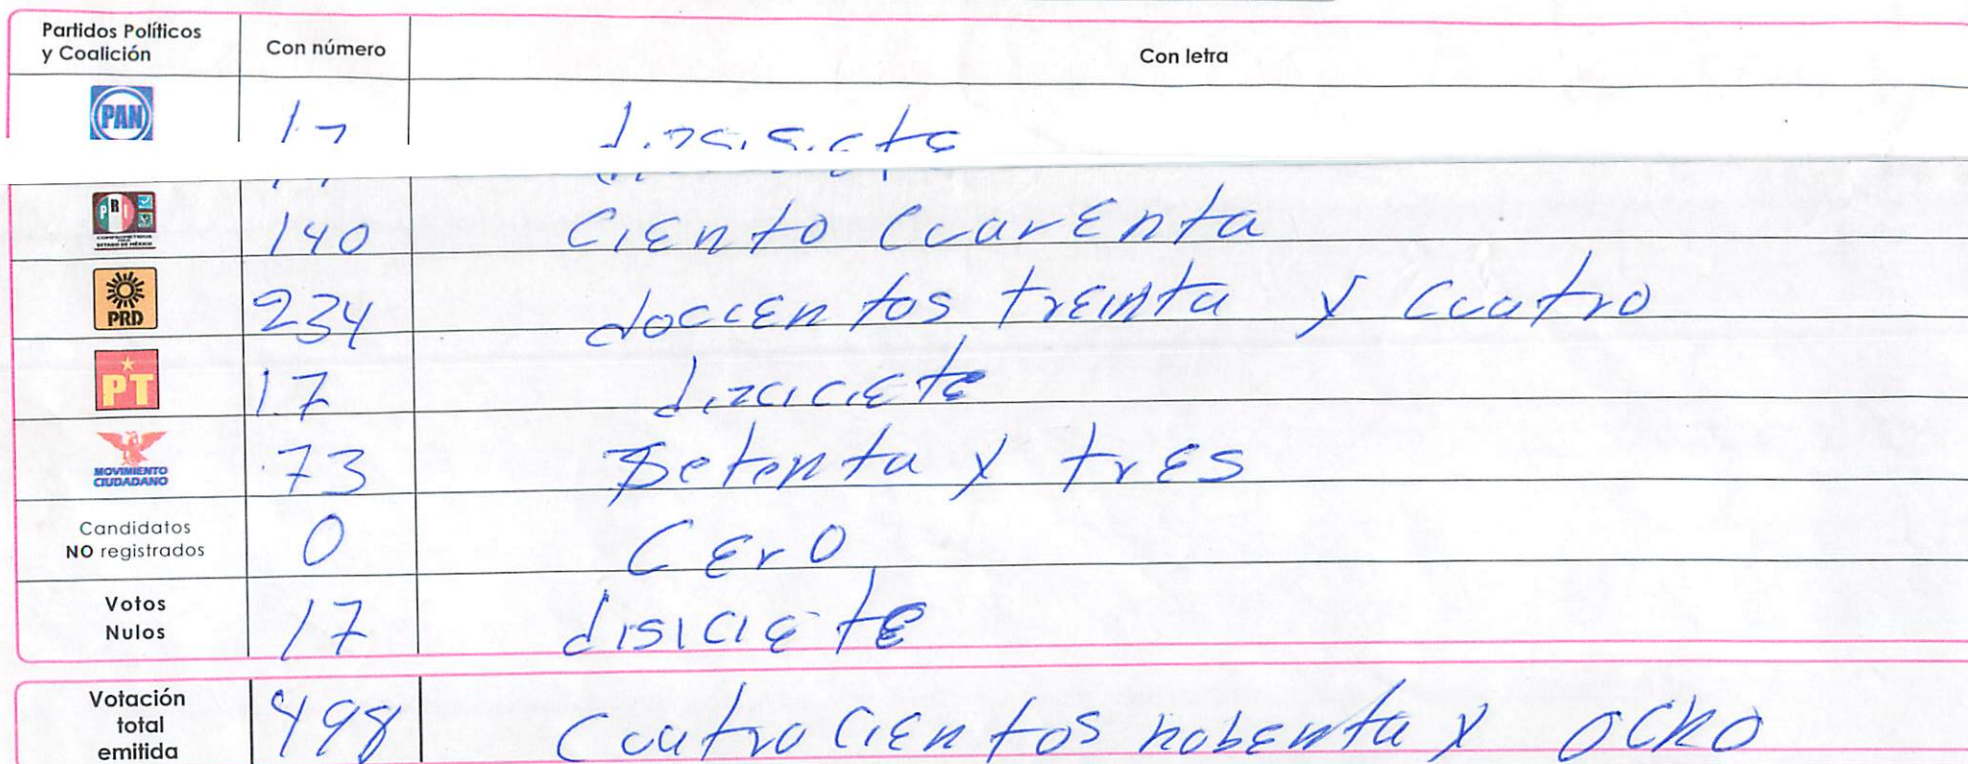 Partidos Políticos y Coalición Con número Con letra
PAN 17
PRI 140 Ciento Cuarenta
PRD 234 doccientos treinta y Cuatro
PT 17 dizciciete
MOVIMIENTO CIUDADANO 73 Setenta y tres
Candidatos NO registrados 0 Cero
Votos Nulos 17 disiciete
Votación total emitida 498 Cuatrocientos nobenta y ocho